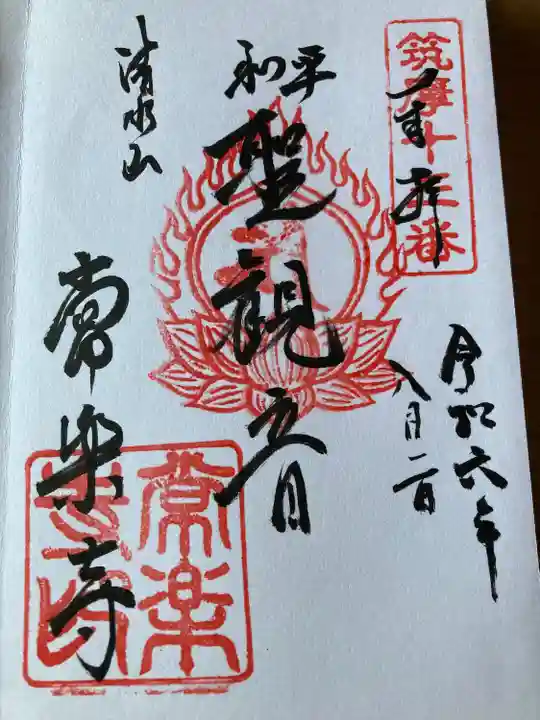 筑摩十三番
奉拝
令和六年
八月二日
平和
聖観音
清水山
常楽寺
常楽